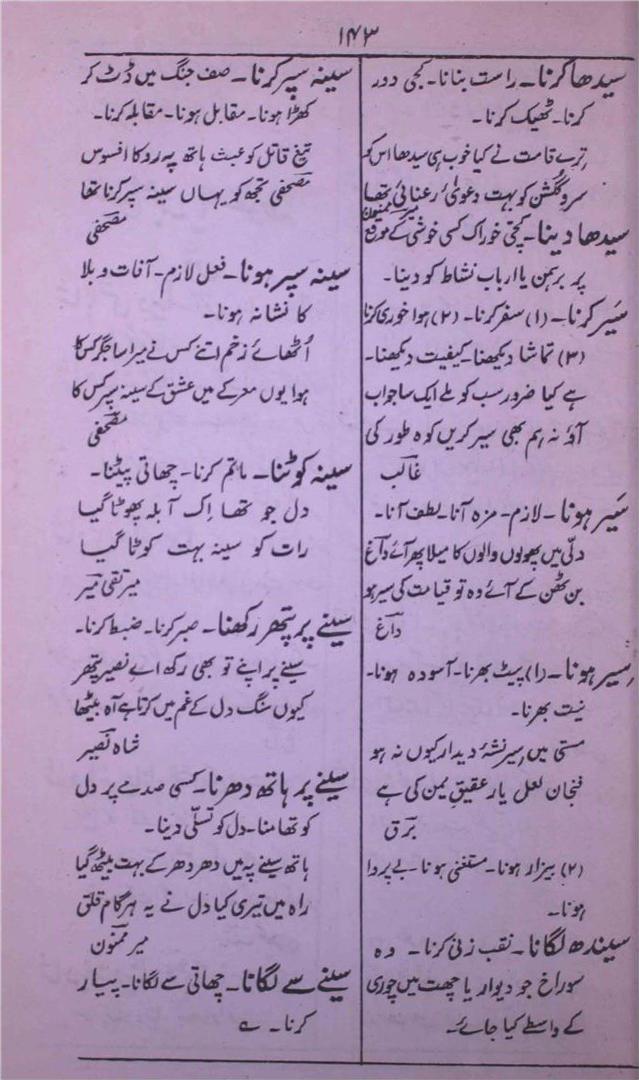 ۱۴۳
سیدھا کرنا۔ راست بنانا۔ کجی دور
کرنا۔ ٹھیک کرنا۔
ترے قامت نے کیا خوب ہی سیدھا اس کو
سرو گلشن کو بہت دعویٰ رعنائی تھا
میر ممنون
سیدھا دینا۔ کچّی خوراک کسی خوشی کے موقع
پر برہمن یا ارباب نشاط کو دینا۔
سَیر کرنا۔ (۱) سفر کرنا۔ (۲) ہوا خوری کرنا
(۳) تماشا دیکھنا۔ کیفیت دیکھنا۔
ہے کیا ضرور سب کو ملے ایک سا جواب
آؤ نہ ہم بھی سیر کریں کوہ طور کی
غالب
سَیر ہونا۔ لازم۔ مزہ آنا۔ لطف آنا۔
دلّی میں پھولوں والوں کا میلا پھر آئے داغ
بن ٹھن کے آئے وہ تو قیامت کی سیر ہو
داغ
سِیر ہونا۔ (۱) پیٹ بھرنا۔ آسودہ ہونا۔
نیت بھرنا۔
مستی میں سیر نشۂ دیدار کیوں نہ ہو
فنجان لعل یار عقیق یمن کی ہے
برق
(۲) بیزار ہونا۔ مستغنی ہونا۔ بے پروا
ہونا۔
سیندھ لگانا۔ نقب زنی کرنا۔ وہ
سوراخ جو دیوار یا چھت میں چوری
کے واسطے کیا جائے۔
سینہ سپر کرنا۔ صف جنگ میں ڈٹ کر
کھڑا ہونا۔ مقابل ہونا۔ مقابلہ کرنا۔
تیغ قاتل کو عبث ہاتھ پہ روکا افسوس
مصحفی تجھ کو یہاں سینہ سپر کرنا تھا
مصحفی
سینہ سپر ہونا۔ فعل لازم۔ آفات و بلا
کا نشانہ ہونا۔
اُٹھائے زخم اتنے کس نے میرا سا جگر کس کا
ہوا یوں معرکے میں عشق کے سینہ سپر کس کا
مصحفی
سینہ کوٹنا۔ ماتم کرنا۔ چھاتی پیٹنا۔
دل جو تھا اِک آبلہ پھوٹا گیا
رات کو سینہ بہت کوٹا گیا
میر تقی میر
سینے پر پتھر رکھنا۔ صبر کرنا۔ ضبط کرنا۔
سینے پر اپنے تو بھی رکھ اے نصیر پتھر
کیوں سنگ دل کے غم میں کرتا ہے آہ بیٹھا
شاہ نصیر
سینے پر ہاتھ دھرنا۔ کسی صدمے پر دل
کو تھامنا۔ دل کو تسلّی دینا۔
ہاتھ سینے پہ میں دھر دھر کے بہت بیٹھ گیا
راہ میں تیری کیا دل نے یہ ہر گام قلق
میر ممنون
سینے سے لگانا۔ چھاتی سے لگانا۔ پیار
کرنا۔ ے